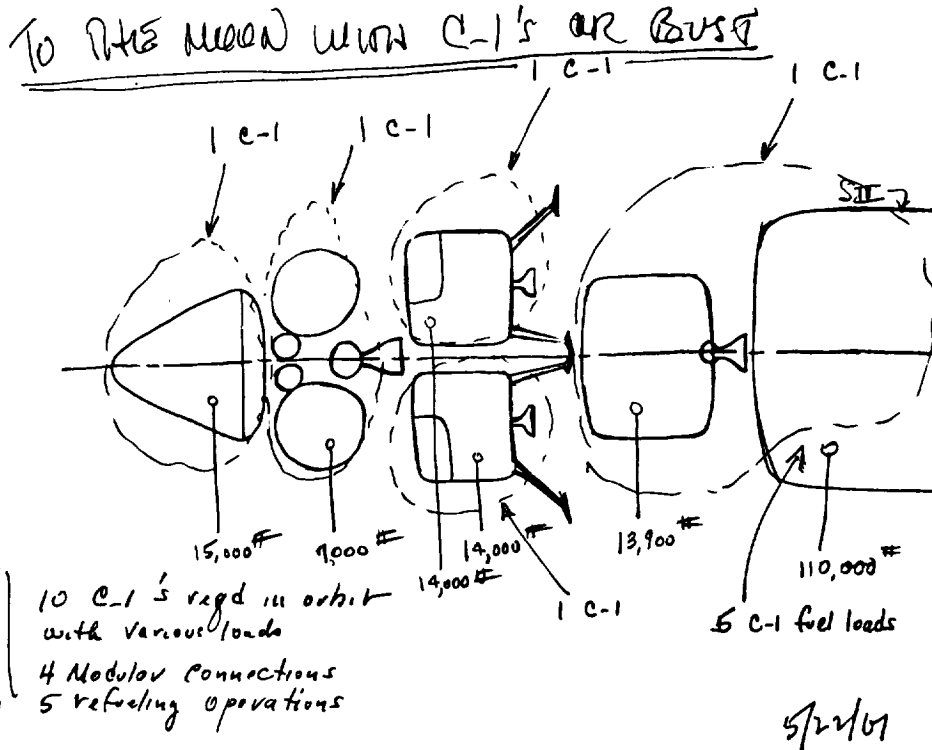 TO THE MOON WITH C-1's OR BUST
1 C-1
1 C-1
1 C-1
1 C-1
SII
15,000#
9,000#
14,000#
14,000#
13,900#
110,000#
1 C-1
5 C-1 fuel loads
10 C-1's reqd in orbit
with various loads
4 Modular Connections
5 refueling operations
5/22/61